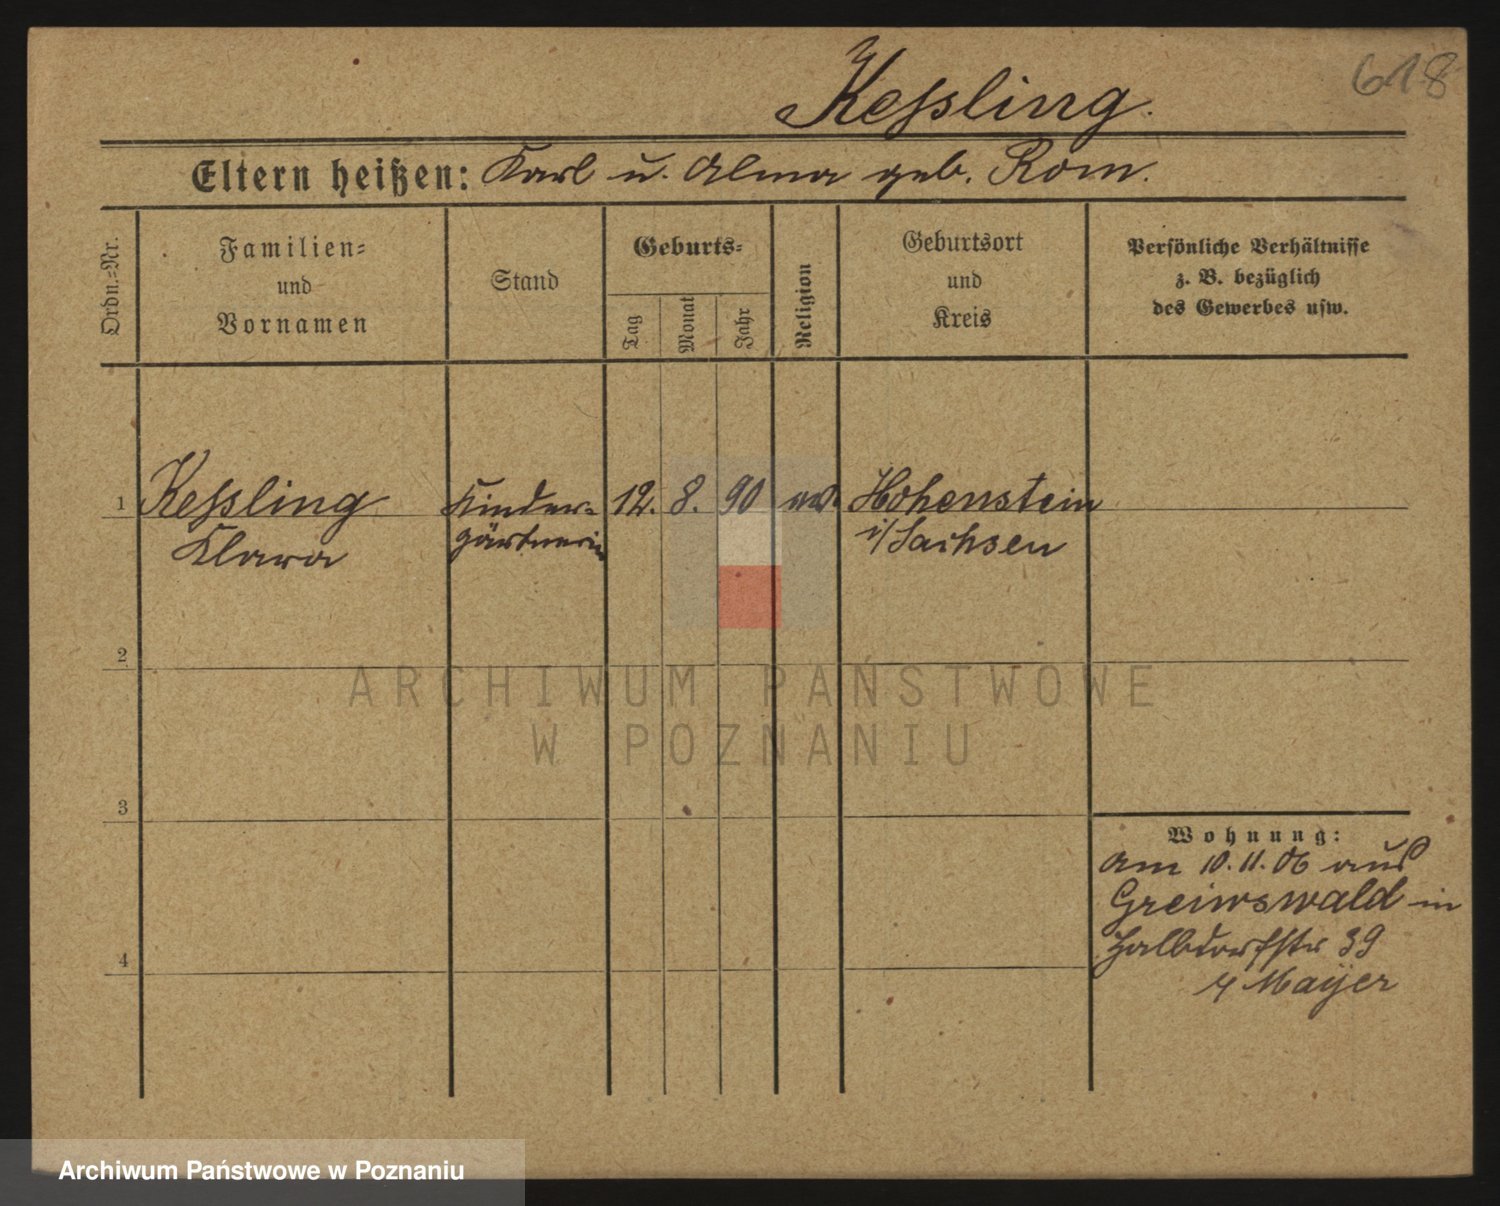 618
Keßling.
Eltern heißen: Karl u. Alma geb. Rom.
Ordn.=Nr.
Familien=
und
Vornamen
Stand
Geburts=
Tag
Monat
Jahr
Religion
Geburtsort
und
Kreis
Persönliche Verhältnisse
z. B. bezüglich
des Gewerbes usw.
1 Keßling Kinder= 12. 8. 90 ev. Hohenstein
Klara gärtnerin i/Sachsen
2
ARCHIWUM PAŃSTWOWE
W POZNANIU
3
Wohnung:
am 10.11.06 aus
Greiwswald in
Halbdorfstr 39
Mayer
4
Archiwum Państwowe w Poznaniu